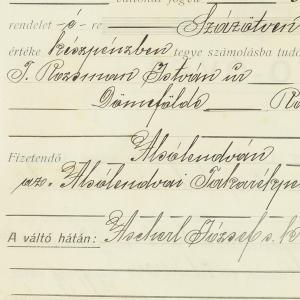 rendelet -é- re Százötven
értéke készpénzben tegye számolásba tudó
T. Rozsman István úr
Dömefölde
Fizetendő Alsólendván
az Alsólendvai Takarékpé
A váltó hátán: Ascherl József s. k